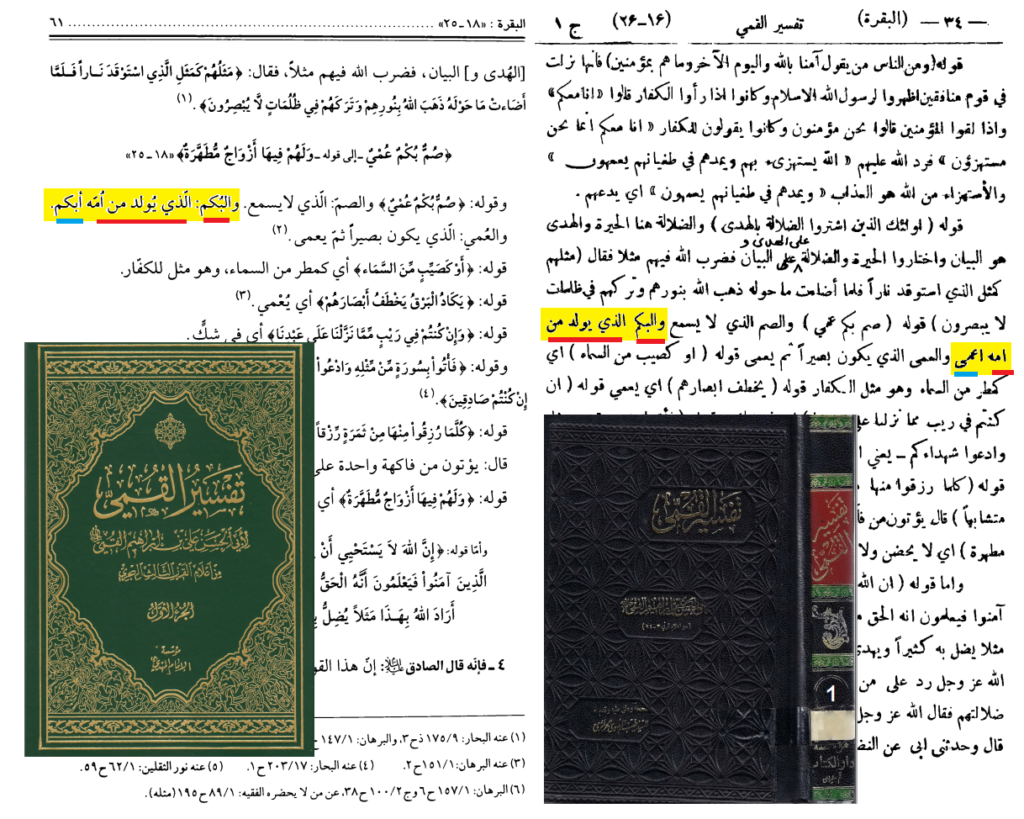 البقرة : «١٨-٢٥» ٦١
[الهُدى و] البيان، فضرب الله فيهم مثلاً، فقال: ﴿مَثَلُهُمْ كَمَثَلِ الَّذِي اسْتَوْقَدَ نَـاراً فَلَمَّا
أَضَاءَتْ مَا حَوْلَهُ ذَهَبَ اللهُ بِنُورِهِمْ وَتَرَكَهُمْ فِي ظُلُمَاتٍ لَّا يُبْصِرُونَ﴾. (١)
﴿صُمٌّ بُكْمٌ عُمْيٌ ـ إلى قوله ـ وَلَهُمْ فِيهَا أَزْوَاجٌ مُّطَهَّرَةٌ﴾ «١٨-٢٥»
وقوله: ﴿صُمٌّ بُكْمٌ عُمْيٌ﴾ والصمّ: الّذي لايسمع. والبُكم: الّذي يُولد من اُمّه أبكم.
والعُمي: الّذي يكون بصيراً ثمّ يعمى. (٢)
قوله: ﴿أَوْ كَصَيِّبٍ مِّنَ السَّمَاءِ﴾ أي كمطر من السماء، وهو مثل للكفّار.
قوله: ﴿يَكَادُ الْبَرْقُ يَخْطَفُ أَبْصَارَهُمْ﴾ أي يُعْمي. (٣)
قوله: ﴿وَإِنْ كُنْتُمْ فِي رَيْبٍ مِّمَّا نَزَّلْنَا عَلَى عَبْدِنَا﴾ أي في شكٍّ.
وقوله: ﴿فَأْتُوا بِسُورَةٍ مِّنْ مِّثْلِهِ وَادْعُوا
إِنْ كُنْتُمْ صَادِقِينَ﴾. (٤)
قوله: ﴿كُلَّمَا رُزِقُوا مِنْهَا مِنْ ثَمَرَةٍ رِّزْقاً
قال: يؤتون من فاكهة واحدة على
قوله: ﴿وَلَهُمْ فِيهَا أَزْوَاجٌ مُّطَهَّرَةٌ﴾ أي
وأمّا قوله: ﴿إِنَّ اللهَ لَا يَسْتَحْيِي أَنْ
الَّذِينَ آمَنُوا فَيَعْلَمُونَ أَنَّهُ الْحَقُّ
أَرَادَ اللهُ بِهَـذَا مَثَلاً يُضِلُّ
٤ ـ فإنّه قال الصادق: إنّ هذا القو
(١) عنه البحار: ١٧٥/٩ ذح٣، والبرهان: ١٤٧/١ح
(٣) عنه البرهان: ١٥١/١ح٢. (٤) عنه البحار: ٢٠٣/١٧ح١. (٥) عنه نور الثقلين: ٦٢/١ح٥٩.
(٦) البرهان: ١٥٧/١ح٦ وج١٠٠/٢ح٣٨، عن من لا يحضره الفقيه: ٨٩/١ح١٩٥ (مثله).
تفسير القمي
لأبي الحسن علي بن إبراهيم القمي
من أعلام القرن الثالث الهجري
الجزء الأول
مؤسسة
الإمام المهدي
— ٣٤ — (البقرة) تفسير القمي (١٦-٢٦) ج ١
قوله (ومن الناس من يقول آمنا بالله واليوم الآخر وما هم بمؤمنين) فأنها نزلت
في قوم منافقين اظهروا لرسول الله الاسلام وكانوا اذا رأوا الكفار قالوا « انا معكم»
واذا لقوا المؤمنين قالوا نحن مؤمنون وكانوا يقولون للكفار « انا معكم انما نحن
مستهزؤن » فرد الله عليهم « الله يستهزىء بهم ويمدهم في طغيانهم يعمهون »
والأستهزاء من الله هو العذاب « ويمدهم في طغيانهم يعمهون » اي يدعهم .
قوله ( اولئك الذين اشتروا الضلالة بالهدى ) والضلالة هنا الحيرة والهدى
على الهدى و
هو البيان واختاروا الحيرة والضلالة على البيان فضرب الله فيهم مثلا فقال (مثلهم
كمثل الذي استوقد ناراً فلما أضاءت ما حوله ذهب الله بنورهم وتركهم في ظلمات
لا يبصرون ) قوله ( صم بكم عمي ) والصم الذي لا يسمع والبكم الذي يولد من
امه اعمى والعمى الذي يكون بصيراً ثم يعمى قوله ( او كصيب من السماء ) اي
كمطر من السماء وهو مثل الكفار قوله ( يخطف ابصارهم ) اي يعمي قوله ( ان
كنتم في ريب مما نزلنا
وادعوا شهداءكم ـ يعني ا
قوله ( كلما رزقوا منها
متشابها ) قال يؤتون من فا
مطهرة ) اي لا يحضن ولا
واما قوله ( ان الله
آمنوا فيعلمون انه الحق م
مثلا يضل به كثيراً ويهدي
الله عز وجل رد على من
ضلالتهم فقال الله عز وجل
قال وحدثني ابي عن النض
تفسير القمي
تفسير القمي
1